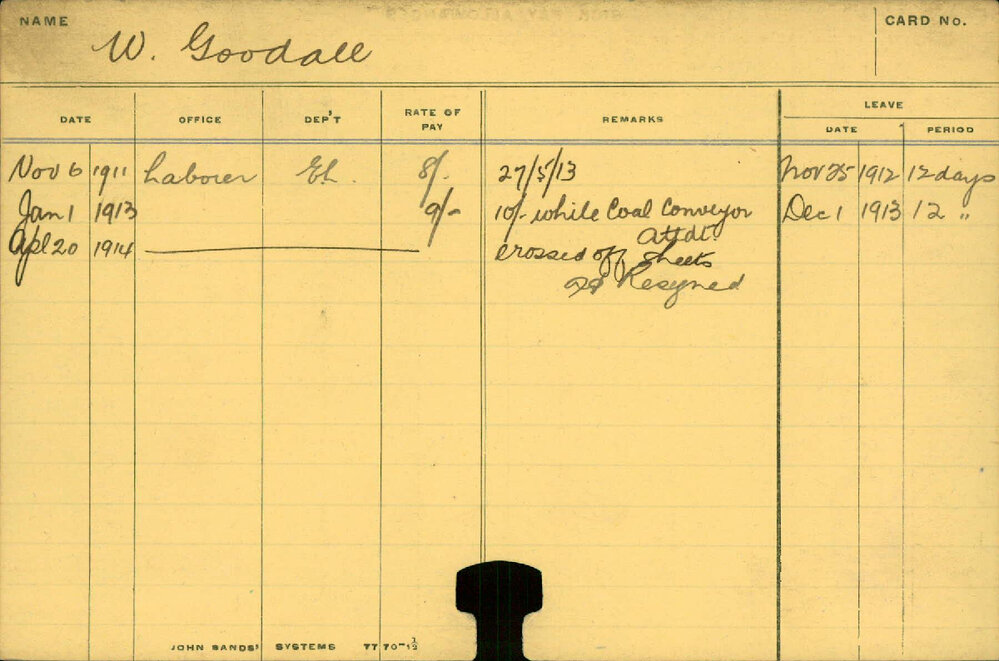 NAME
W. Goodall
CARD No.
DATE OFFICE DEP'T RATE OF PAY REMARKS LEAVE
DATE PERIOD
Nov 6 1911 Labourer El. 8/- 27/5/13 Nov 25 1912 12 days
Jan 1 1913 9/- 10/- while Coal Conveyor Dec 1 1913 12 "
Attdt.
Apl 20 1914 crossed off sheets
as Resigned
JOHN SANDS' SYSTEMS 7770-